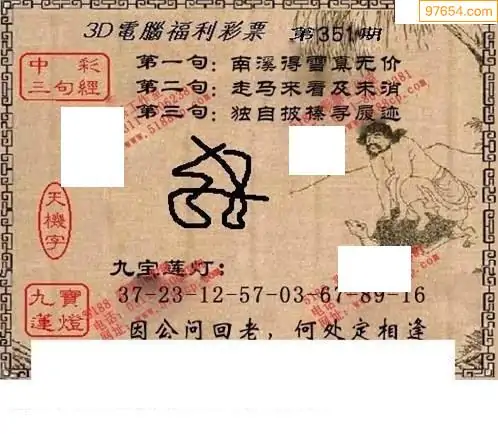 97654.com
3D電腦福利彩票 第351期
中彩
三句經
第一句：南溪得雪真无价
第二句：走马来看及未消
第三句：独自披榛寻履迹
天機字
九宝莲灯：
37-23-12-57-03-67-89-16
九寶
蓮燈
因公问回老，何处定相逢